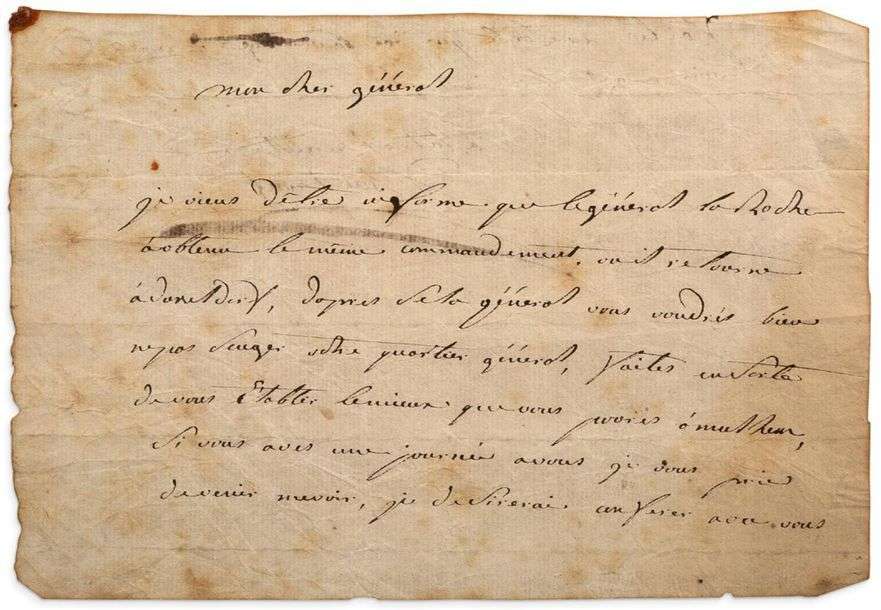 mon cher général
je viens dêtre informé que legénéral la Roche
àobtenu le même commandement, ou il retourne
à, dapres Sela général vous voudrés bien
nepas Songer votre quartier général, faites ensorte
de vous Etablir lemieux que vous pourés à
Si vous avés une journée avous je vous prie
devenir mevoir, je desirerai conferer avec vous